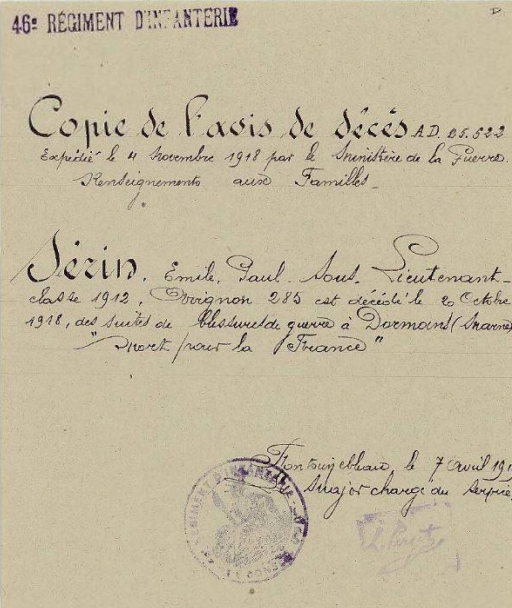 D
46e RÉGIMENT D'INFANTERIE
Copie de l'avis de décès A.D. 25.522
Expédié le 4 Novembre 1918 par le Ministère de la Guerre.
Renseignements aux Familles.
Sézin. Emile, Paul. Sous-Lieutenant-
classe 1912, Avignon 285 est décédé le 2 Octobre
1918, des suites de blessures de guerre à Dormans (Marne)
"Mort pour la France"
Fontainebleau, le 7 Avril 191
Major chargé du Service
RÉGIMENT D'INFANTERIE